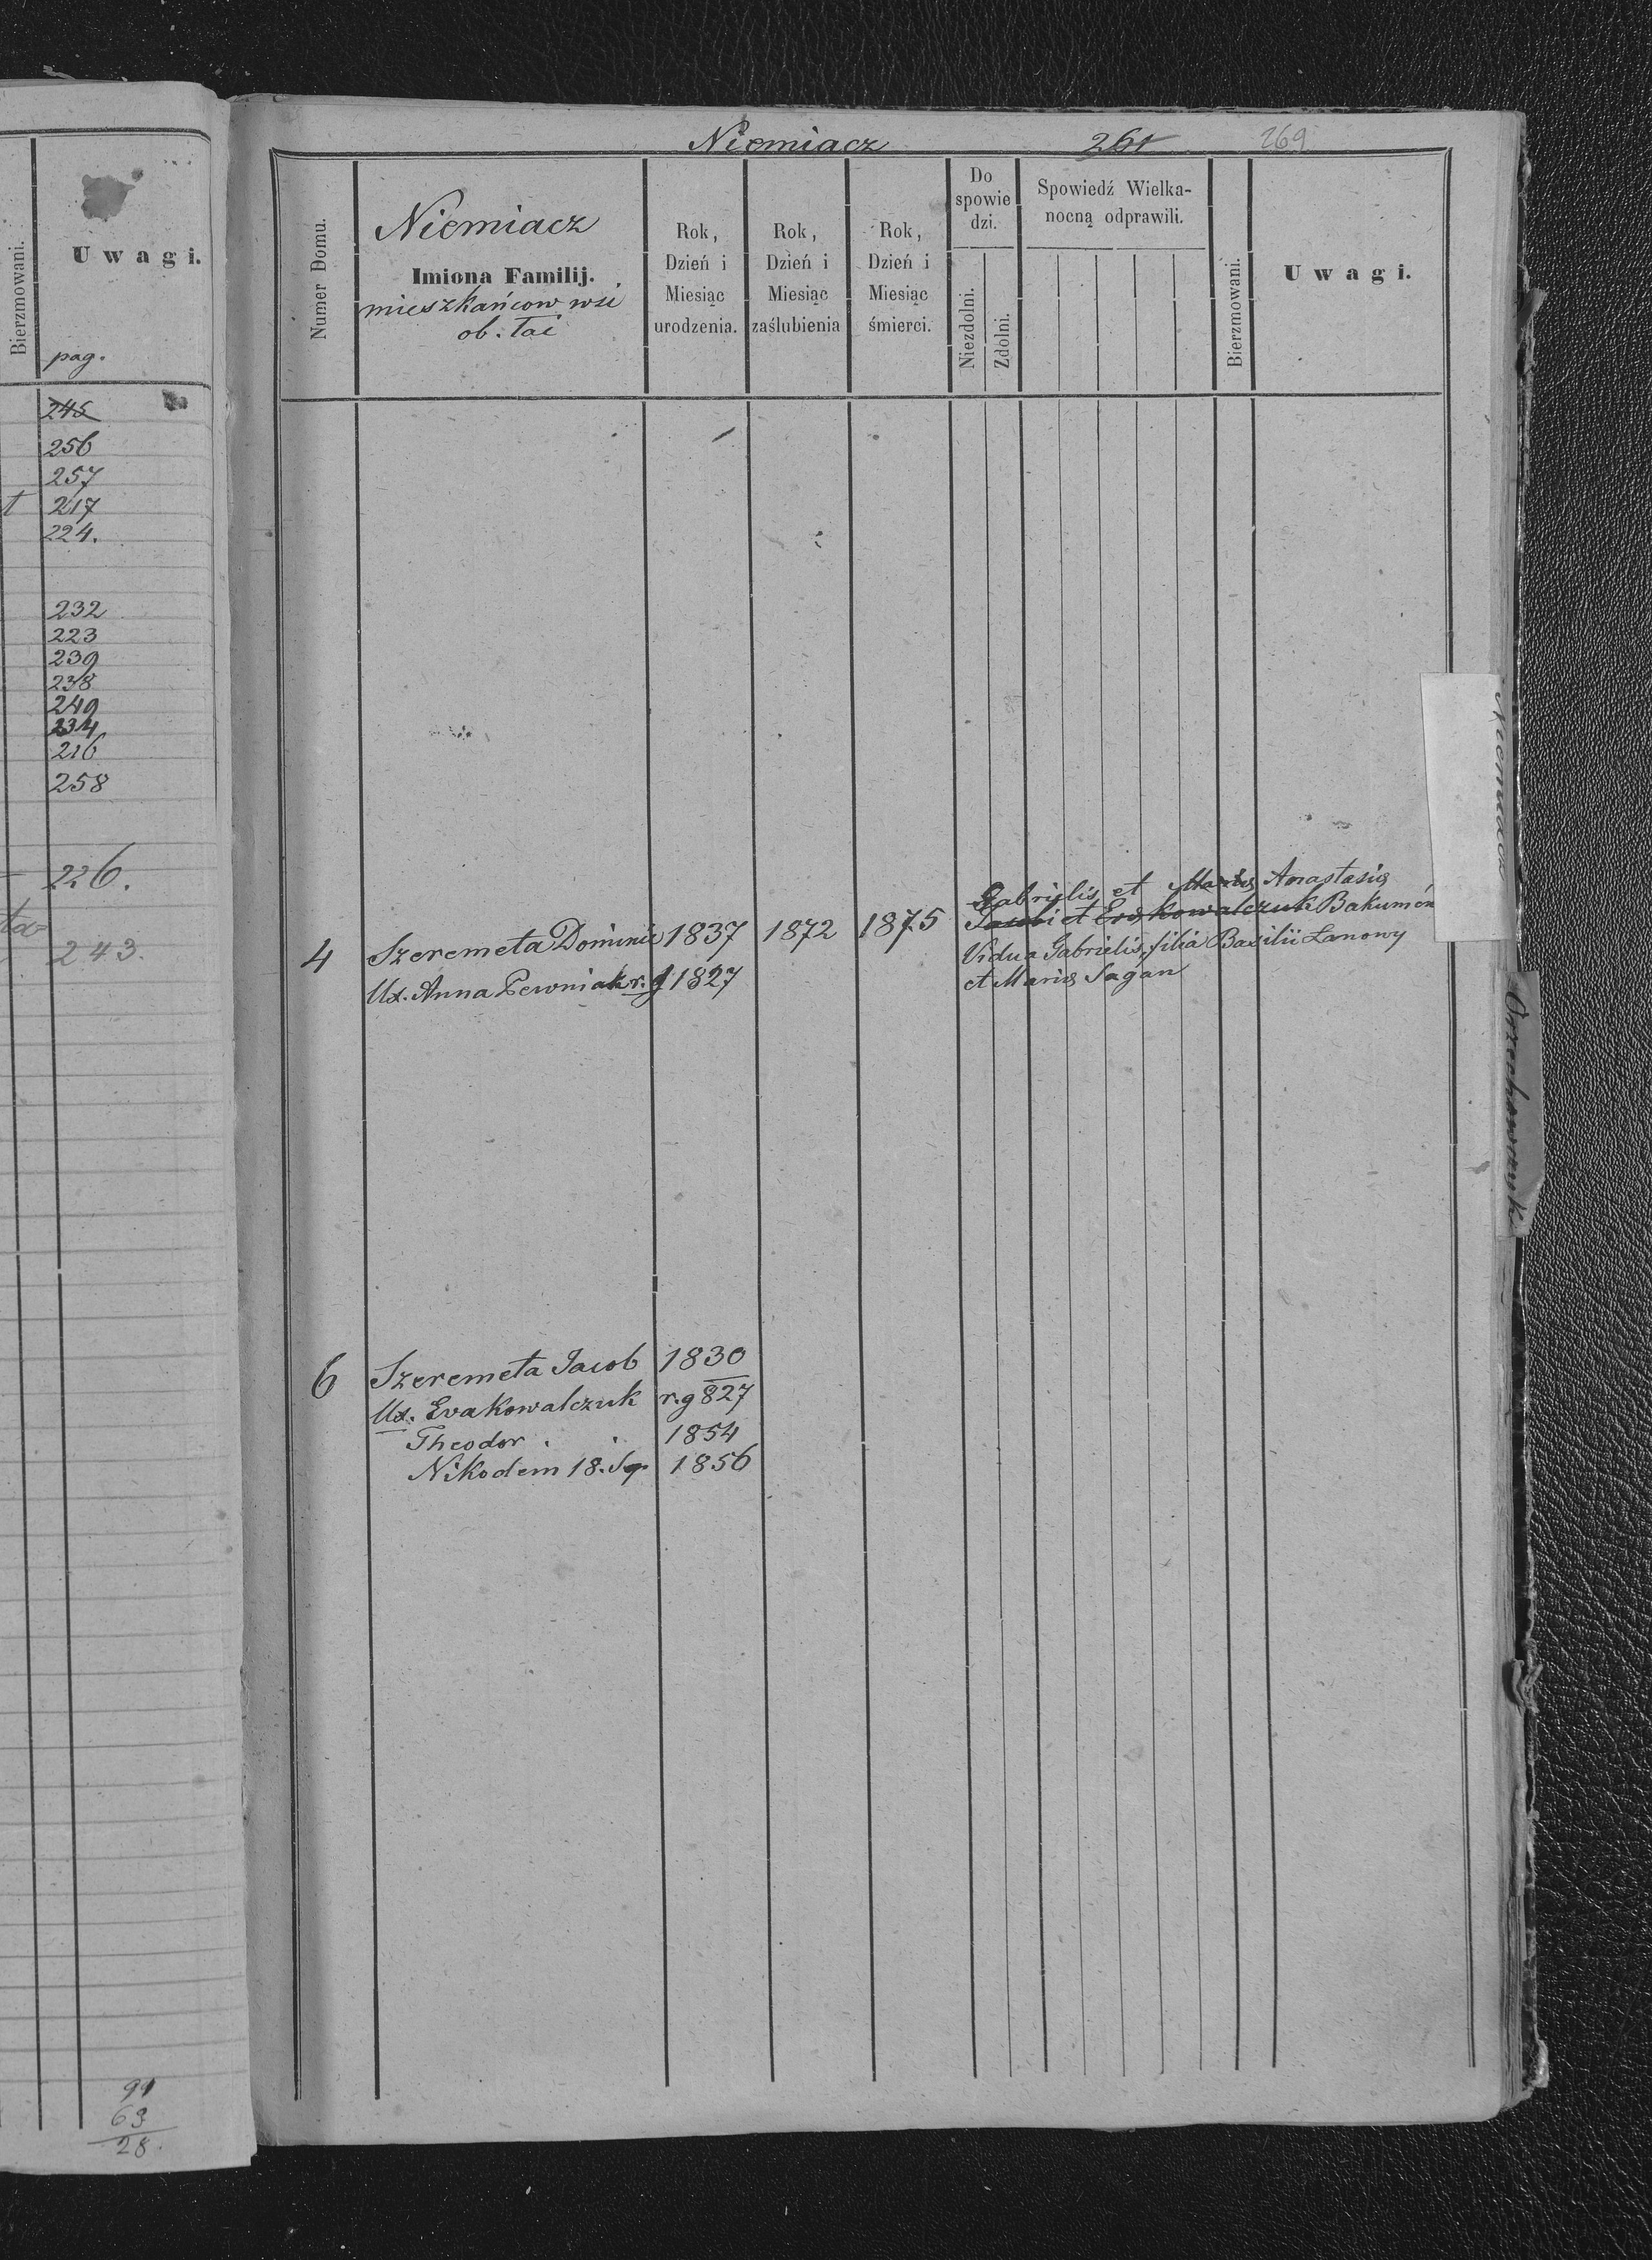 Bierzmowani.
Uwagi.
pag.
245
256
257
t 217
224.
232
223
239
238
249
234
216
258
226.
243.
91
63
28.
Niemiacz 261 269
Numer Domu.
Niemiacz
Imiona Familij.
mieszkańcow wsi
ob. łac
Rok,
Dzień i
Miesiąc
urodzenia.
Rok,
Dzień i
Miesiąc
zaślubienia
Rok,
Dzień i
Miesiąc
śmierci.
Do
spowie
dzi.
Niezdolni.
Zdolni.
Spowiedź Wielka-
nocną odprawili.
Bierzmowani.
Uwagi.
Gabrielis et Maria Anastasia
4 Szeremeta Dominic 1837 1872 1875 Jacobi et Eva Kowalczuk Bakumen
Vidua Gabrielis, filia Basilii Lanowy
Ux. Anna Pewniak r. g 1827 et Maria Sagan
6 Szeremeta Jacob 1830
Ux. Eva Kowalczuk r. g 827
Theodor 1854
Nikodem 18. 1856
Niemiacz
Orzechowczyk